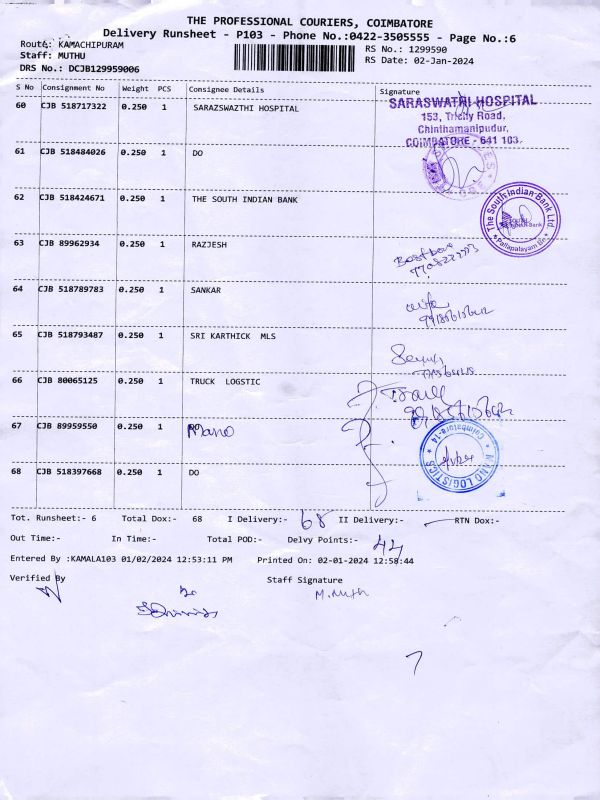 THE PROFESSIONAL COURIERS, COIMBATORE
Delivery Runsheet - P103 - Phone No.:0422-3505555 - Page No.:6
Route: KAMACHIPURAM
RS No.: 1299590
Staff: MUTHU
RS Date: 02-Jan-2024
DRS No.: DCJB129959006
S No Consignment No Weight PCS Consignee Details Signature
60 CJB 518717322 0.250 1 SARAZSWAZTHI HOSPITAL
SARASWATHI HOSPITAL
153, Trichy Road,
Chinthamanipudur,
COIMBATORE - 641 103.
61 CJB 518484026 0.250 1 DO
62 CJB 518424671 0.250 1 THE SOUTH INDIAN BANK
The South Indian Bank Ltd.
Pallapalayam Br.
63 CJB 89962934 0.250 1 RAZJESH
64 CJB 518789783 0.250 1 SANKAR
65 CJB 518793487 0.250 1 SRI KARTHICK MLS
66 CJB 80065125 0.250 1 TRUCK LOGSTIC
67 CJB 89959550 0.250 1 Mano
MANO LOGISTICS
Coimbatore-14
68 CJB 518397668 0.250 1 DO
Tot. Runsheet:- 6 Total Dox:- 68 I Delivery:- 68 II Delivery:- RTN Dox:-
Out Time:- In Time:- Total POD:- Delvy Points:- 44
Entered By :KAMALA103 01/02/2024 12:53:11 PM Printed On: 02-01-2024 12:58:44
Verified By Staff Signature
M. Muth
7